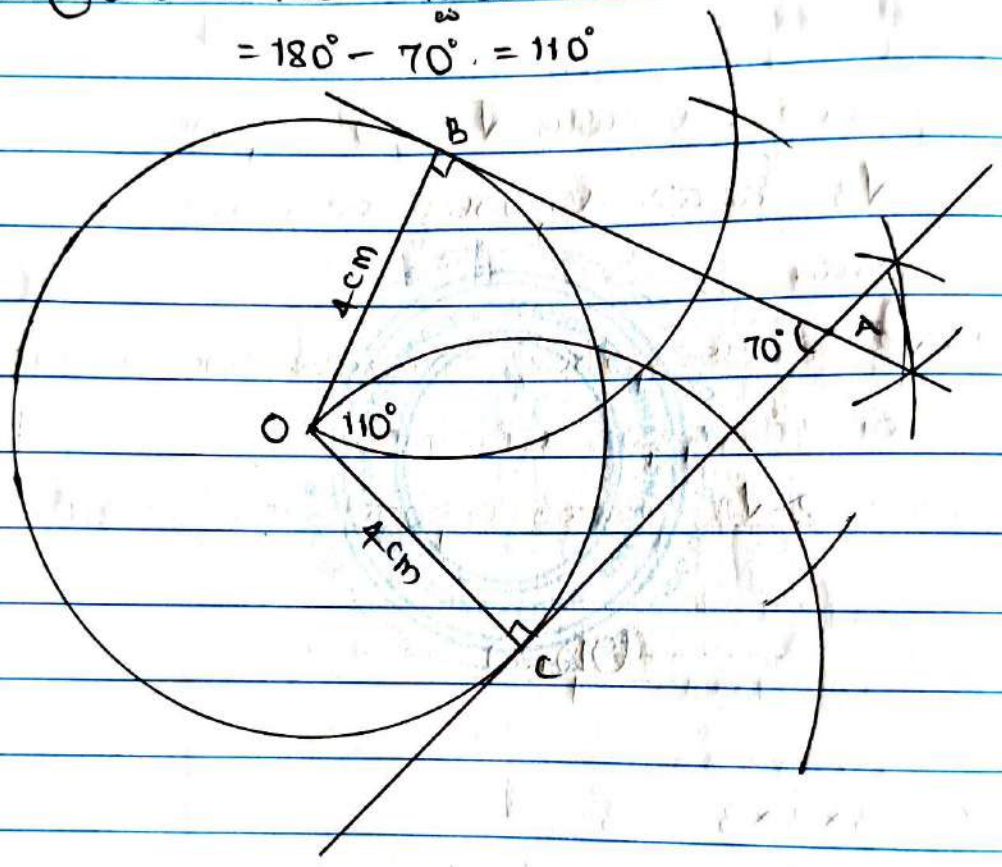 = 180° - 70° = 110°
B
4 cm
A
70°
O
110°
4 cm
C